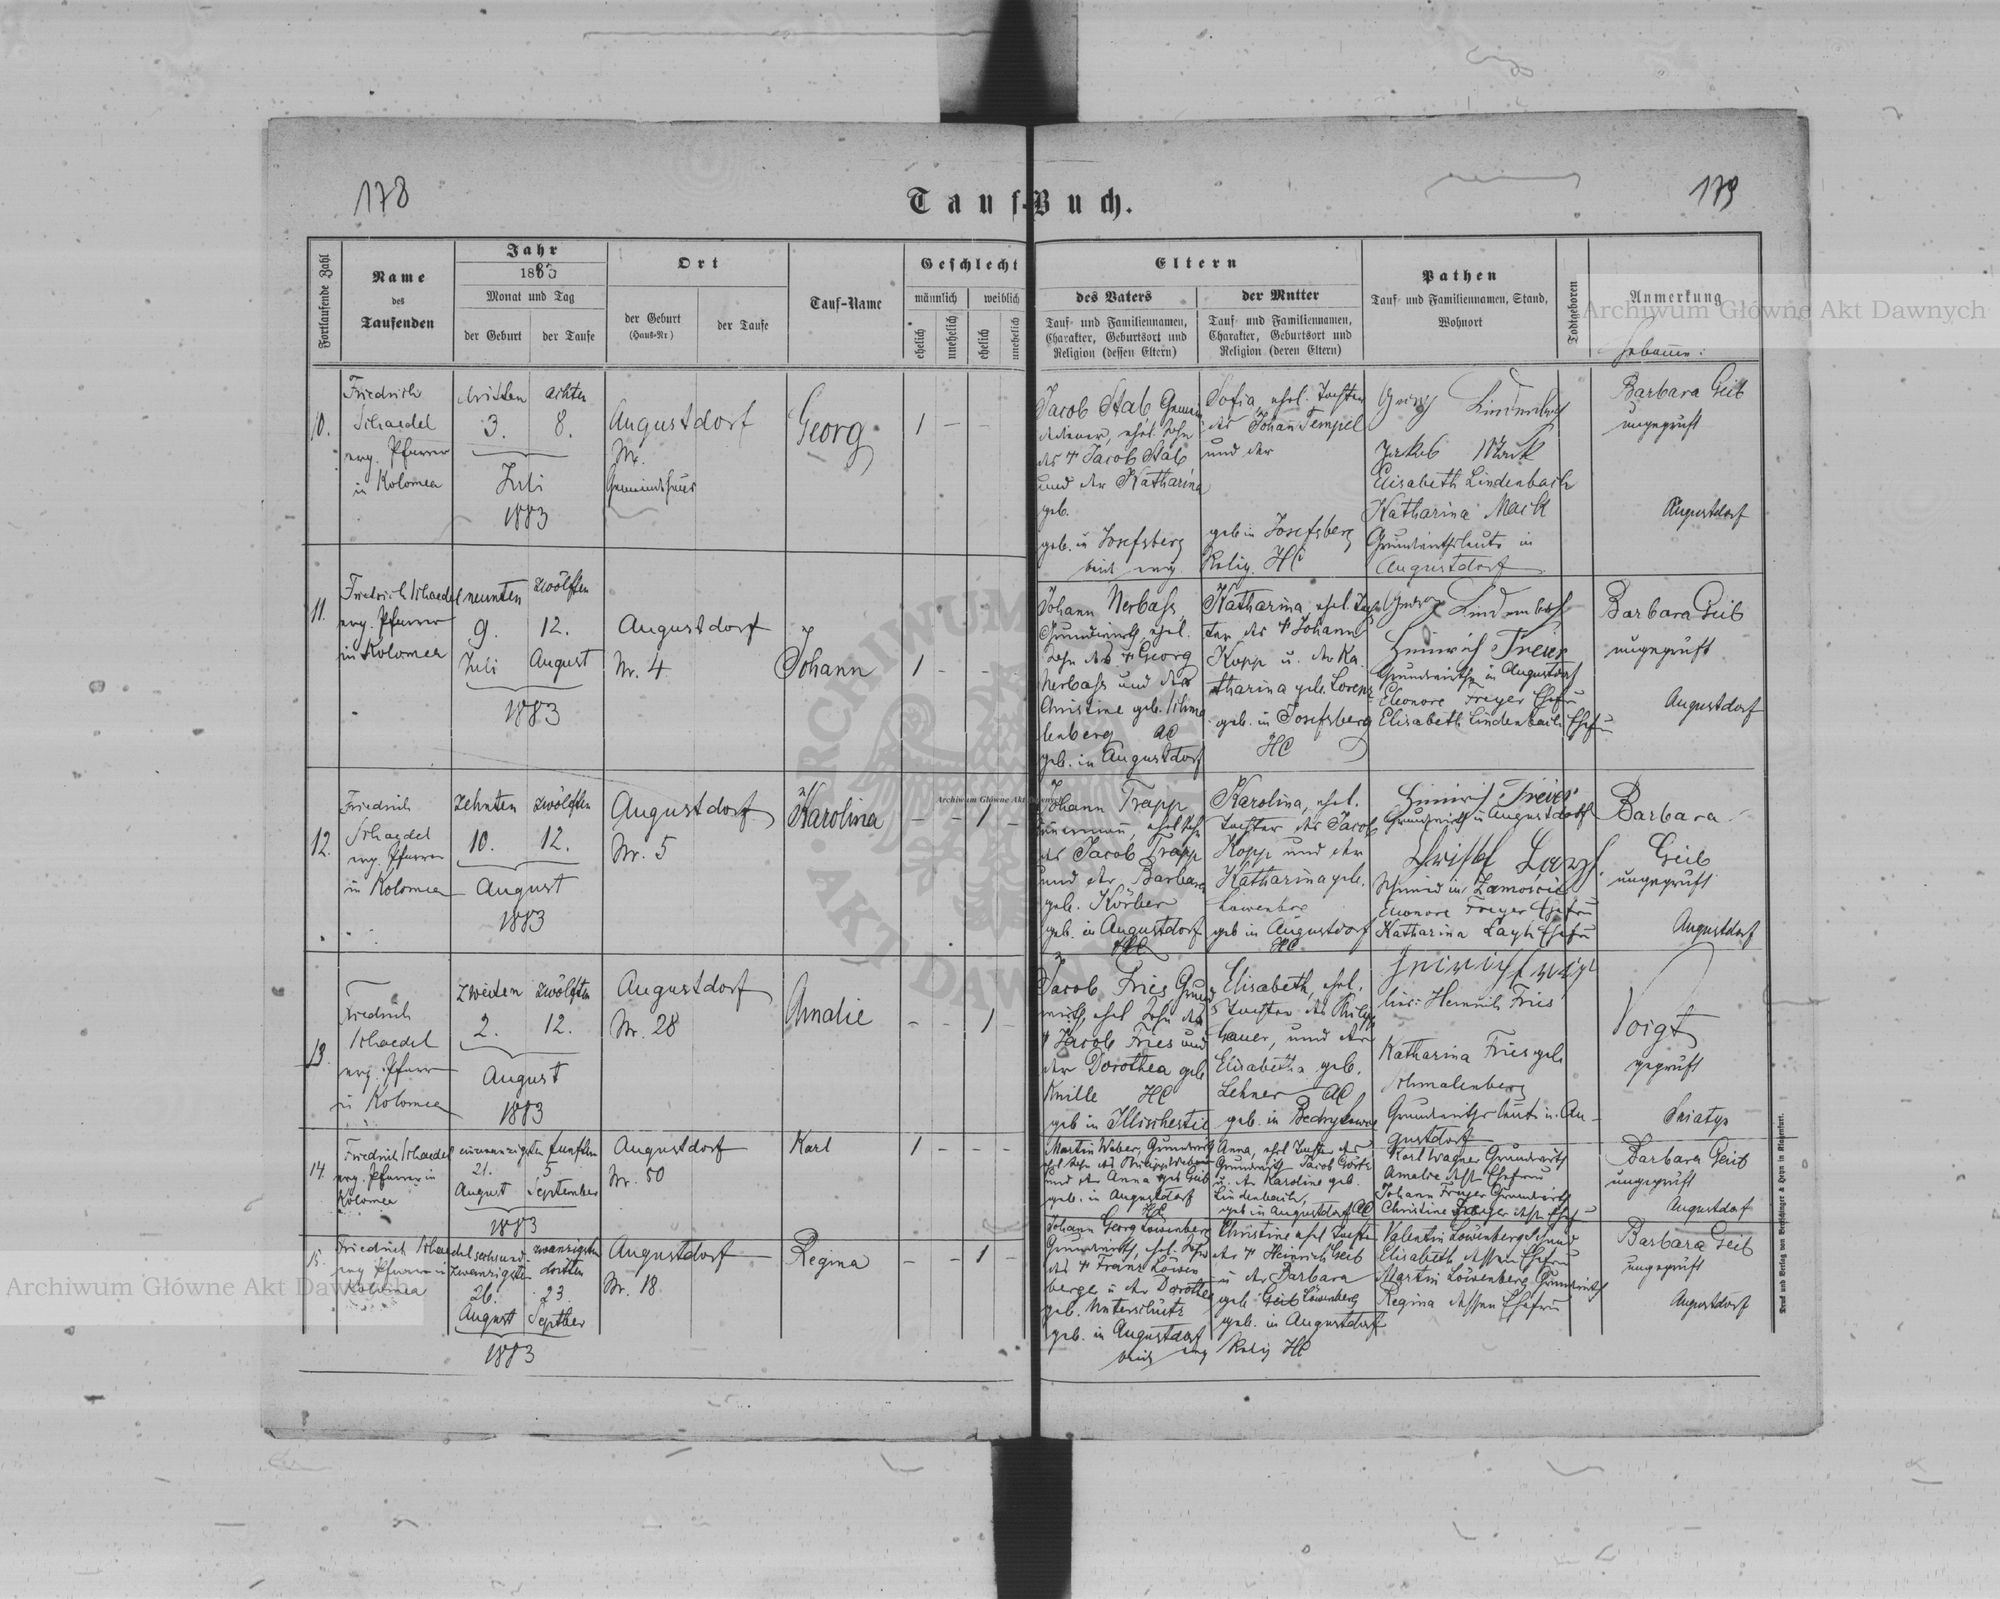 178
Tauf-Buch.
179
Fortlaufende Zahl
Name
des
Taufenden
Jahr
1883
Monat und Tag
der Geburt
der Taufe
Ort
der Geburt
(Haus-Nr)
der Taufe
Tauf-Name
Geschlecht
männlich
weiblich
ehelich
unehelich
ehelich
unehelich
Eltern
des Vaters
Tauf- und Familiennamen,
Charakter, Geburtsort und
Religion (dessen Eltern)
der Mutter
Tauf- und Familiennamen,
Charakter, Geburtsort und
Religion (deren Eltern)
Pathen
Tauf- und Familiennamen, Stand,
Wohnort
Todtgeboren
Anmerkung
Archiwum Główne Akt Dawnych
10.
Friedrich
Schaedel
evg. Pfarrer
in Kolomea
dritten
3.
achten
8.
Juli
1883
Augustdorf
Nr.
Gemeindehaus
Georg
1 - -
Jacob Stab
des † Jacob Stab
und der Katharina
geb.
geb. in Josefsberg
beide evg.
Sofia, ehel. Tochter
des Johan Tempel
und der
geb in Josefsberg
Relig. HC
Georg Lindenbach
Jakob Mack
Elisabeth Lindenbach
Katharina Mack
Grundwirthsleute in
Augustdorf
Barbara Geib
ungeprüft
Augustdorf
11.
Friedrich Schaedel
evg. Pfarrer
in Kolomea
neunten
9.
Juli
zwölften
12.
August
1883
Augustdorf
Nr. 4
Johann
1 - - -
Johann Nerbass
Grundwirth, ehel.
Sohn des † Georg
Nerbass und der
Christine geb. Schma
lenberg AC
geb. in Augustdorf
Katharina, ehel. Toch
ter des † Johann
Kopp u. der Ka
tharina geb. Lorenz
geb. in Josefsberg
HC
Georg Lindenbach
Heinrich Freier
Grundwirthe in Augustdorf
Eleonore Freyer Ehefrau
Elisabeth Lindenbach Ehefrau
Barbara Geib
ungeprüft
Augustdorf
12.
Friedrich
Schaedel
evg. Pfarrer
in Kolomea
zehnten
10.
zwölften
12.
August
1883
Augustdorf
Nr. 5
Karolina
- - 1 -
Johann Trapp
des Jacob Trapp
und der Barbara
geb. Körber
geb. in Augustdorf
Karolina, ehel.
Tochter des Jacob
Kopp und der
Katharina geb.
geb in Augustdorf
HC
Heinrich Freier
Grundwirth in Augustdorf
Schmied in Zamoscie
Eleonore Freyer Ehefrau
Katharina Layh Ehefrau
Barbara
Geib
ungeprüft
Augustdorf
13.
Friedrich
Schaedel
evg. Pfarrer
in Kolomea
zweiten
2.
zwölften
12.
August
1883
Augustdorf
Nr. 28
Amalie
- - 1 -
Jacob Fries Grund
wirth, ehel Sohn des
† Jacob Fries und
der Dorothea geb
Knille HC
geb in Illischestie
Elisabeth, ehel.
Tochter des Philipp
Gauer, und der
Elisabetha geb.
Lehner AC
geb. in
Heinrich Fries
Katharina Fries geb
Schmalenberg
Grundwirthsleute in Au-
gustdorf
Voigt
geprüft
Sniatyn
14.
Friedrich Schaedel
evg. Pfarrer in
Kolomea
einundzwanzigsten
21.
August
fünften
5
September
1883
Augustdorf
Nr. 50
Karl
1 - - -
Martin Weber, Grundwirth
ehel Sohn des Philipp Weber
und der Anna geb Geib
geb. in Augustdorf
HC
Anna, ehel Tochter des
Grundwirth Jacob Görtz
u. der Karoline geb.
Lindenbach,
geb in Augustdorf AC
Karl Wagner Grundwirth
Amalie dessen Ehefrau
Johann Freyer Grundwirth
Christine Freyer dessen Ehefrau
Barbara Geib
ungeprüft
Augustdorf
15.
Friedrich Schaedel
evg Pfarrer in
Kolomea
sechsund
zwanzigsten
26.
August
zwanzigsten
dritten
23.
Septber
1883
Augustdorf
Nr. 18
Regina
- - 1 -
Johann Georg Löwenberg
Grundwirth, ehel. Sohn
des † Franz Löwen
berge u der Dorothea
geb. Unterschütz
geb. in Augustdorf
beide evg
Christine ehel Tochter
des † Heinrich Geib
u der Barbara
geb. Geib Löwenberg
geb. in Augustdorf
Relig HC
Valentin Löwenberg Schmied
Elisabeth dessen Ehefrau
Martin Löwenberg Grundwirth
Regina dessen Ehefrau
Barbara Geib
ungeprüft
Augustdorf
Druck und Verlag von Bertschinger & Heyn in Klagenfurt.
Archiwum Główne Akt Dawnych
Archiwum Główne Akt Dawnych